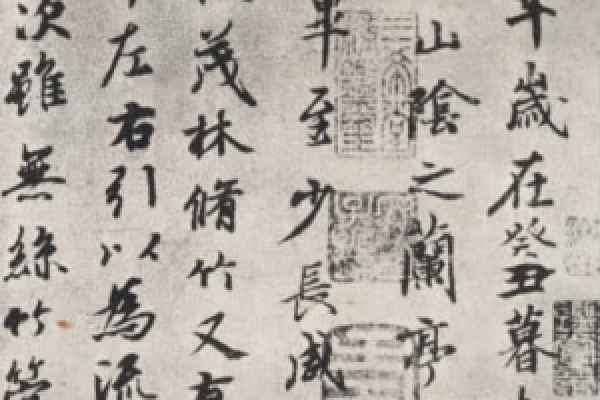 年歲在癸丑暮
山陰之蘭亭
畢至少長咸
茂林脩竹又有
左右引以為流
次雖無絲竹管